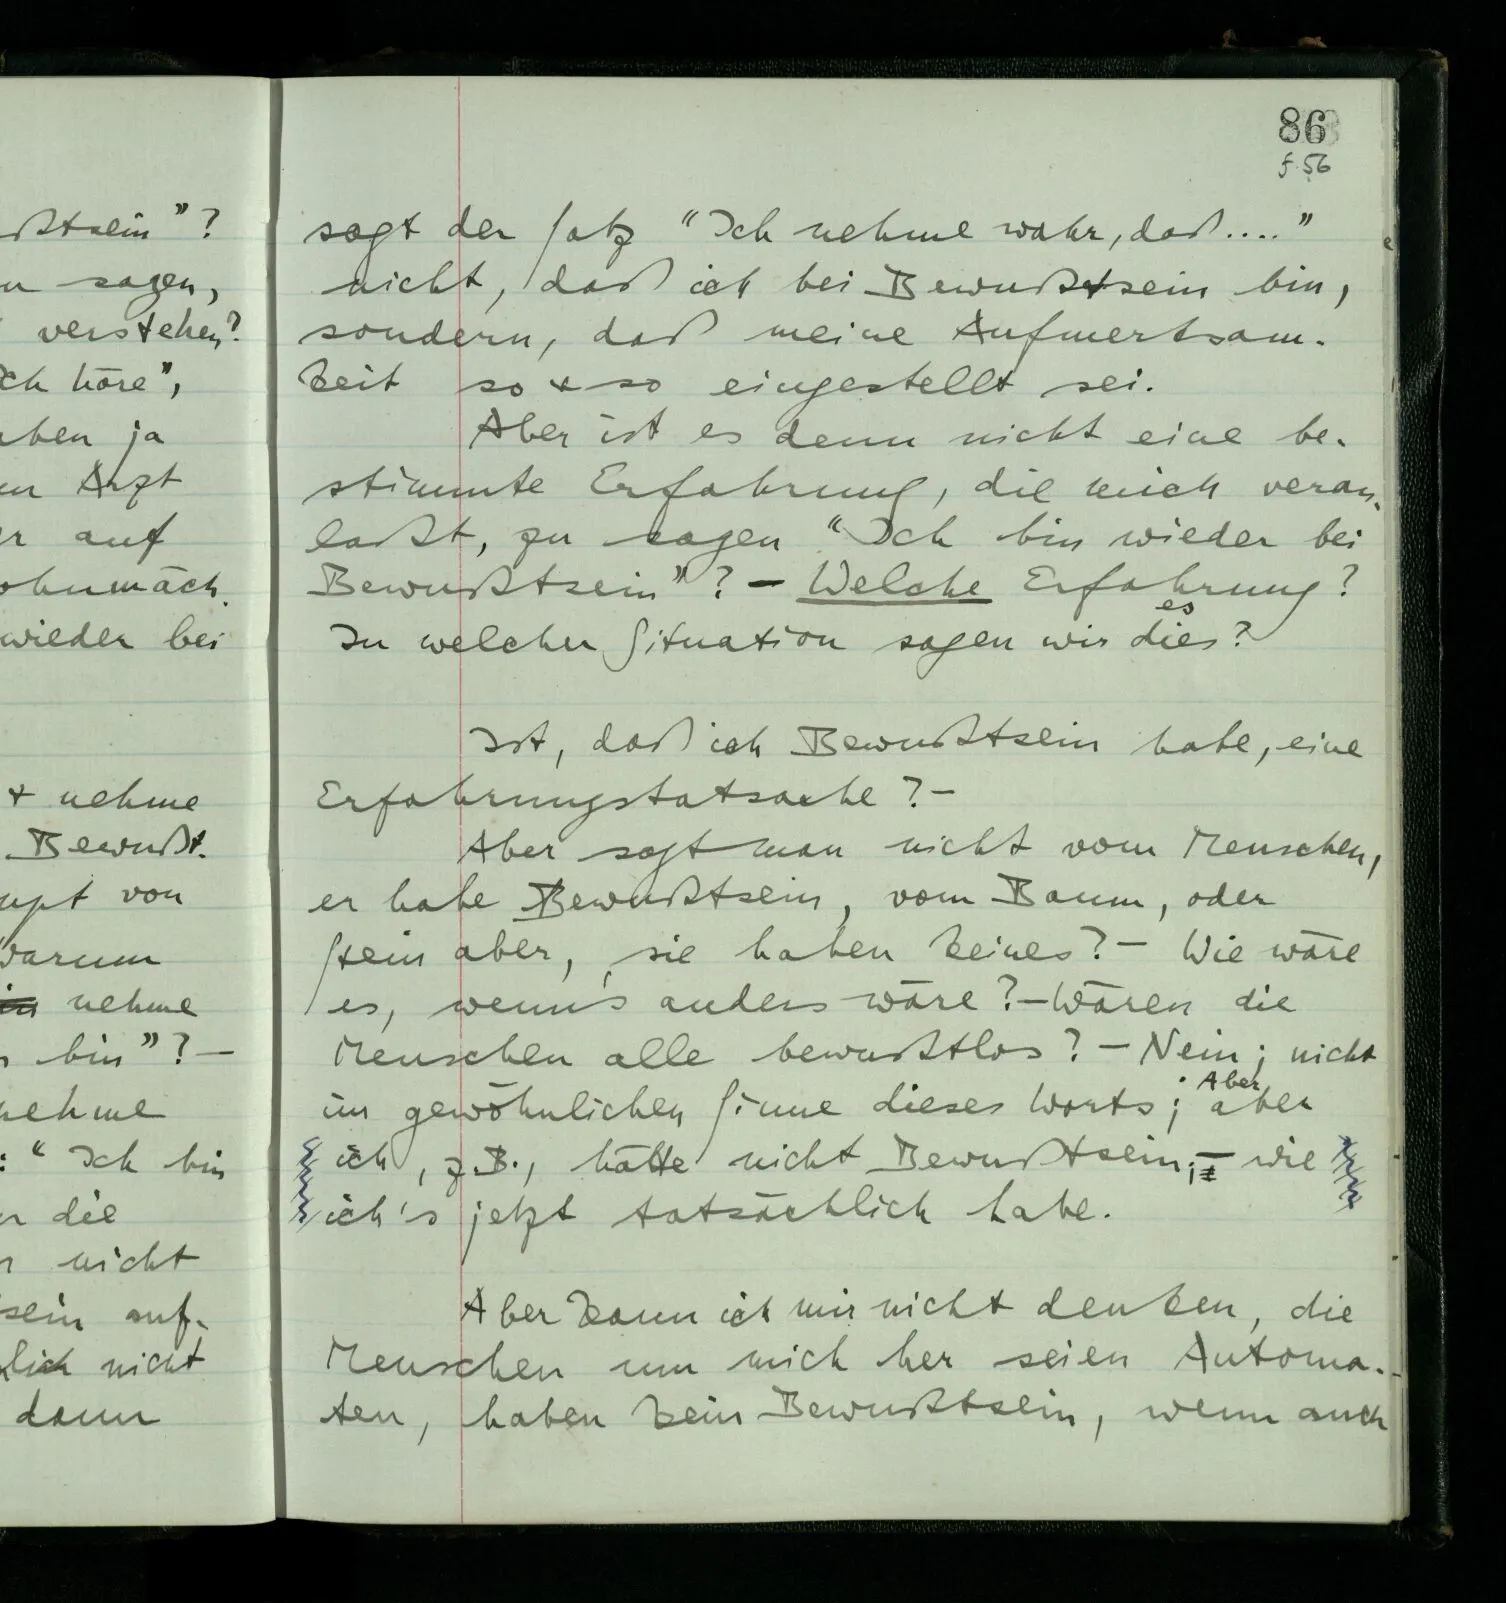 ßtsein"?
sagen,
verstehen?
ch höre",
aben ja
Arzt
auf
ohnmäch-
wieder bei
+ nehme
Bewußt-
upt von
warum
nehme
bin"? —
nehme
: "Ich bin
die
nicht
sein auf-
lich nicht
dann
86
f. 56
sagt der Satz "Ich nehme wahr, daß...."
nicht, daß ich bei Bewußtsein bin,
sondern, daß meine Aufmerksam-
keit so + so eingestellt sei.
Aber ist es denn nicht eine be-
stimmte Erfahrung, die mich veran-
laßt, zu sagen "Ich bin wieder bei
Bewußtsein"? — Welche Erfahrung?
es
In welcher Situation sagen wir dies?
Ist, daß ich Bewußtsein habe, eine
Erfahrungstatsache? —
Aber sagt man nicht vom Menschen,
er habe Bewußtsein, vom Baum, oder
Stein aber, sie haben keines? — Wie wäre
es, wenn's anders wäre? — Wären die
Menschen alle bewußtlos? — Nein; nicht
Aber
im gewöhnlichen Sinne dieses Worts; aber
ich, z.B., hätte nicht Bewußtsein; — wie
ich's jetzt tatsächlich habe.
Aber kann ich mir nicht denken, die
Menschen um mich her seien Automa-
ten, haben kein Bewußtsein, wenn auch